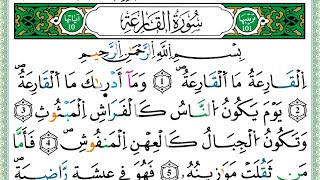 ترتيبها 101 سُورَةُ القَارِعَة آياتها 10
بِسْمِ اللَّهِ الرَّحْمَٰنِ الرَّحِيمِ
اَلْقَارِعَةُ مَا اَلْقَارِعَةُ ۖ 1 وَمَآ أَدْرَىٰكَ مَا اَلْقَارِعَةُ ۖ
2 يَوْمَ يَكُونُ اُلنَّاسُ كَالْفَرَاشِ اِلْمَبْثُوثِ 3
وَتَكُونُ اُلْجِبَالُ كَالْعِهْنِ اِلْمَنفُوشِ ۖ 4 فَأَمَّا
مَن ثَقُلَتْ مَوَٰزِينُهُۥ 5 فَهُوَ فِي عِيشَةٍ رَّاضِيَةٍ ۖ